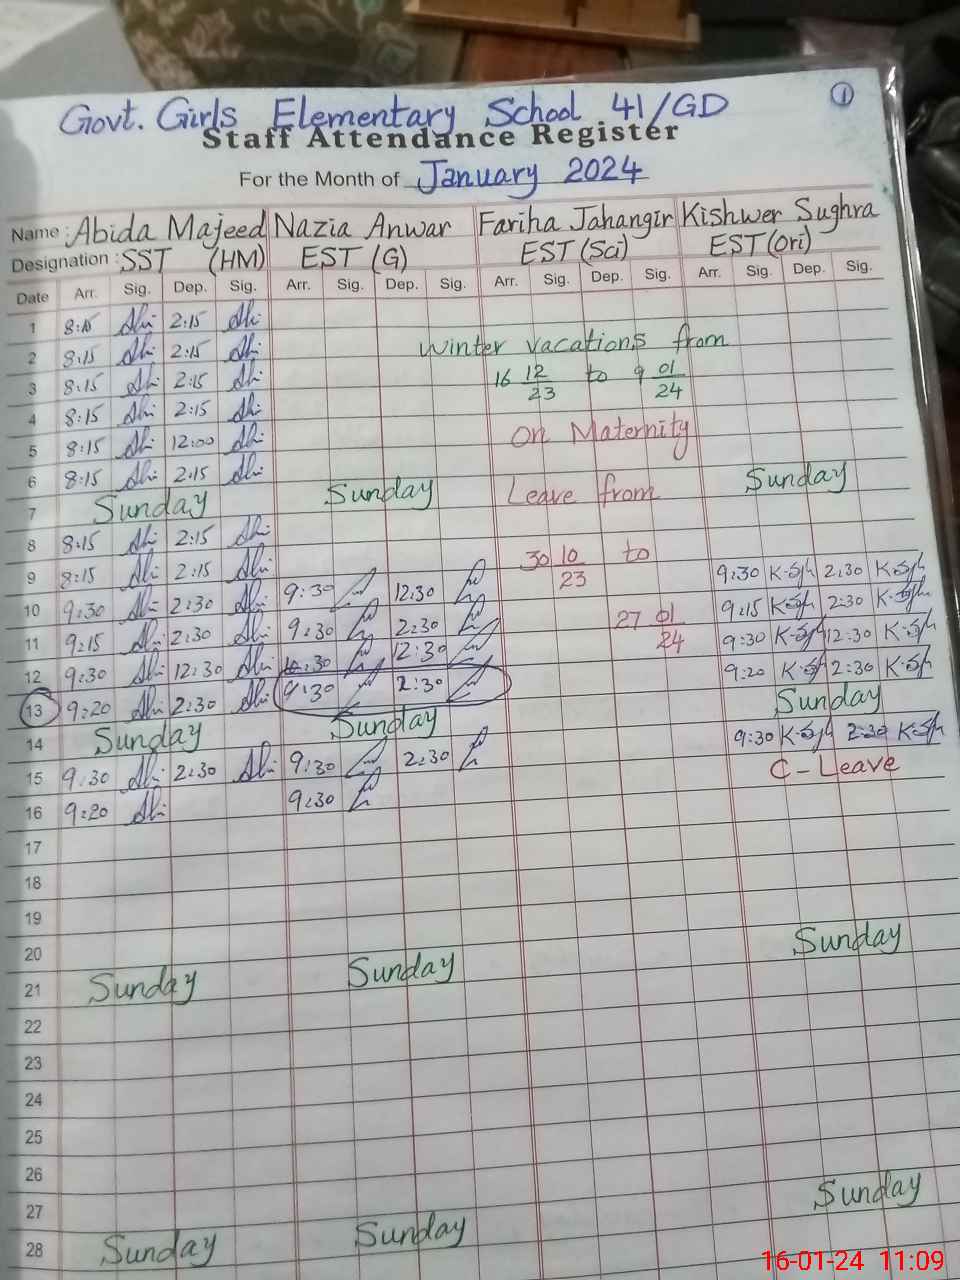 ①
Govt. Girls Elementary School 41/GD
Staff Attendance Register
For the Month of January 2024
Name : Abida Majeed Nazia Anwar Fariha Jahangir Kishwer Sughra
Designation : SST (HM) EST (G) EST (Sci) EST (Ori)
Date Arr. Sig. Dep. Sig. Arr. Sig. Dep. Sig. Arr. Sig. Dep. Sig. Arr. Sig. Dep. Sig.
1 8:15 2:15
2 8:15 2:15 Winter vacations from
3 8:15 2:15 16 12/23 to 9 01/24
4 8:15 2:15
5 8:15 12:00 On Maternity
6 8:15 2:15
7 Sunday Sunday Leave from Sunday
8 8:15 2:15
9 8:15 2:15 30 10/23 to
10 9:30 2:30 9:30 12:30 9:30 2:30
11 9:15 2:30 9:30 2:30 27 01/24 9:15 2:30
12 9:30 12:30 10:30 12:30 9:30 12:30
13 9:20 2:30 9:30 2:30 9:20 2:30
14 Sunday Sunday Sunday
15 9:30 2:30 9:30 2:30 9:30 2:30
16 9:20 9:30 C-Leave
17
18
19
20
21 Sunday Sunday Sunday
22
23
24
25
26
27
28 Sunday Sunday Sunday
16-01-24 11:09